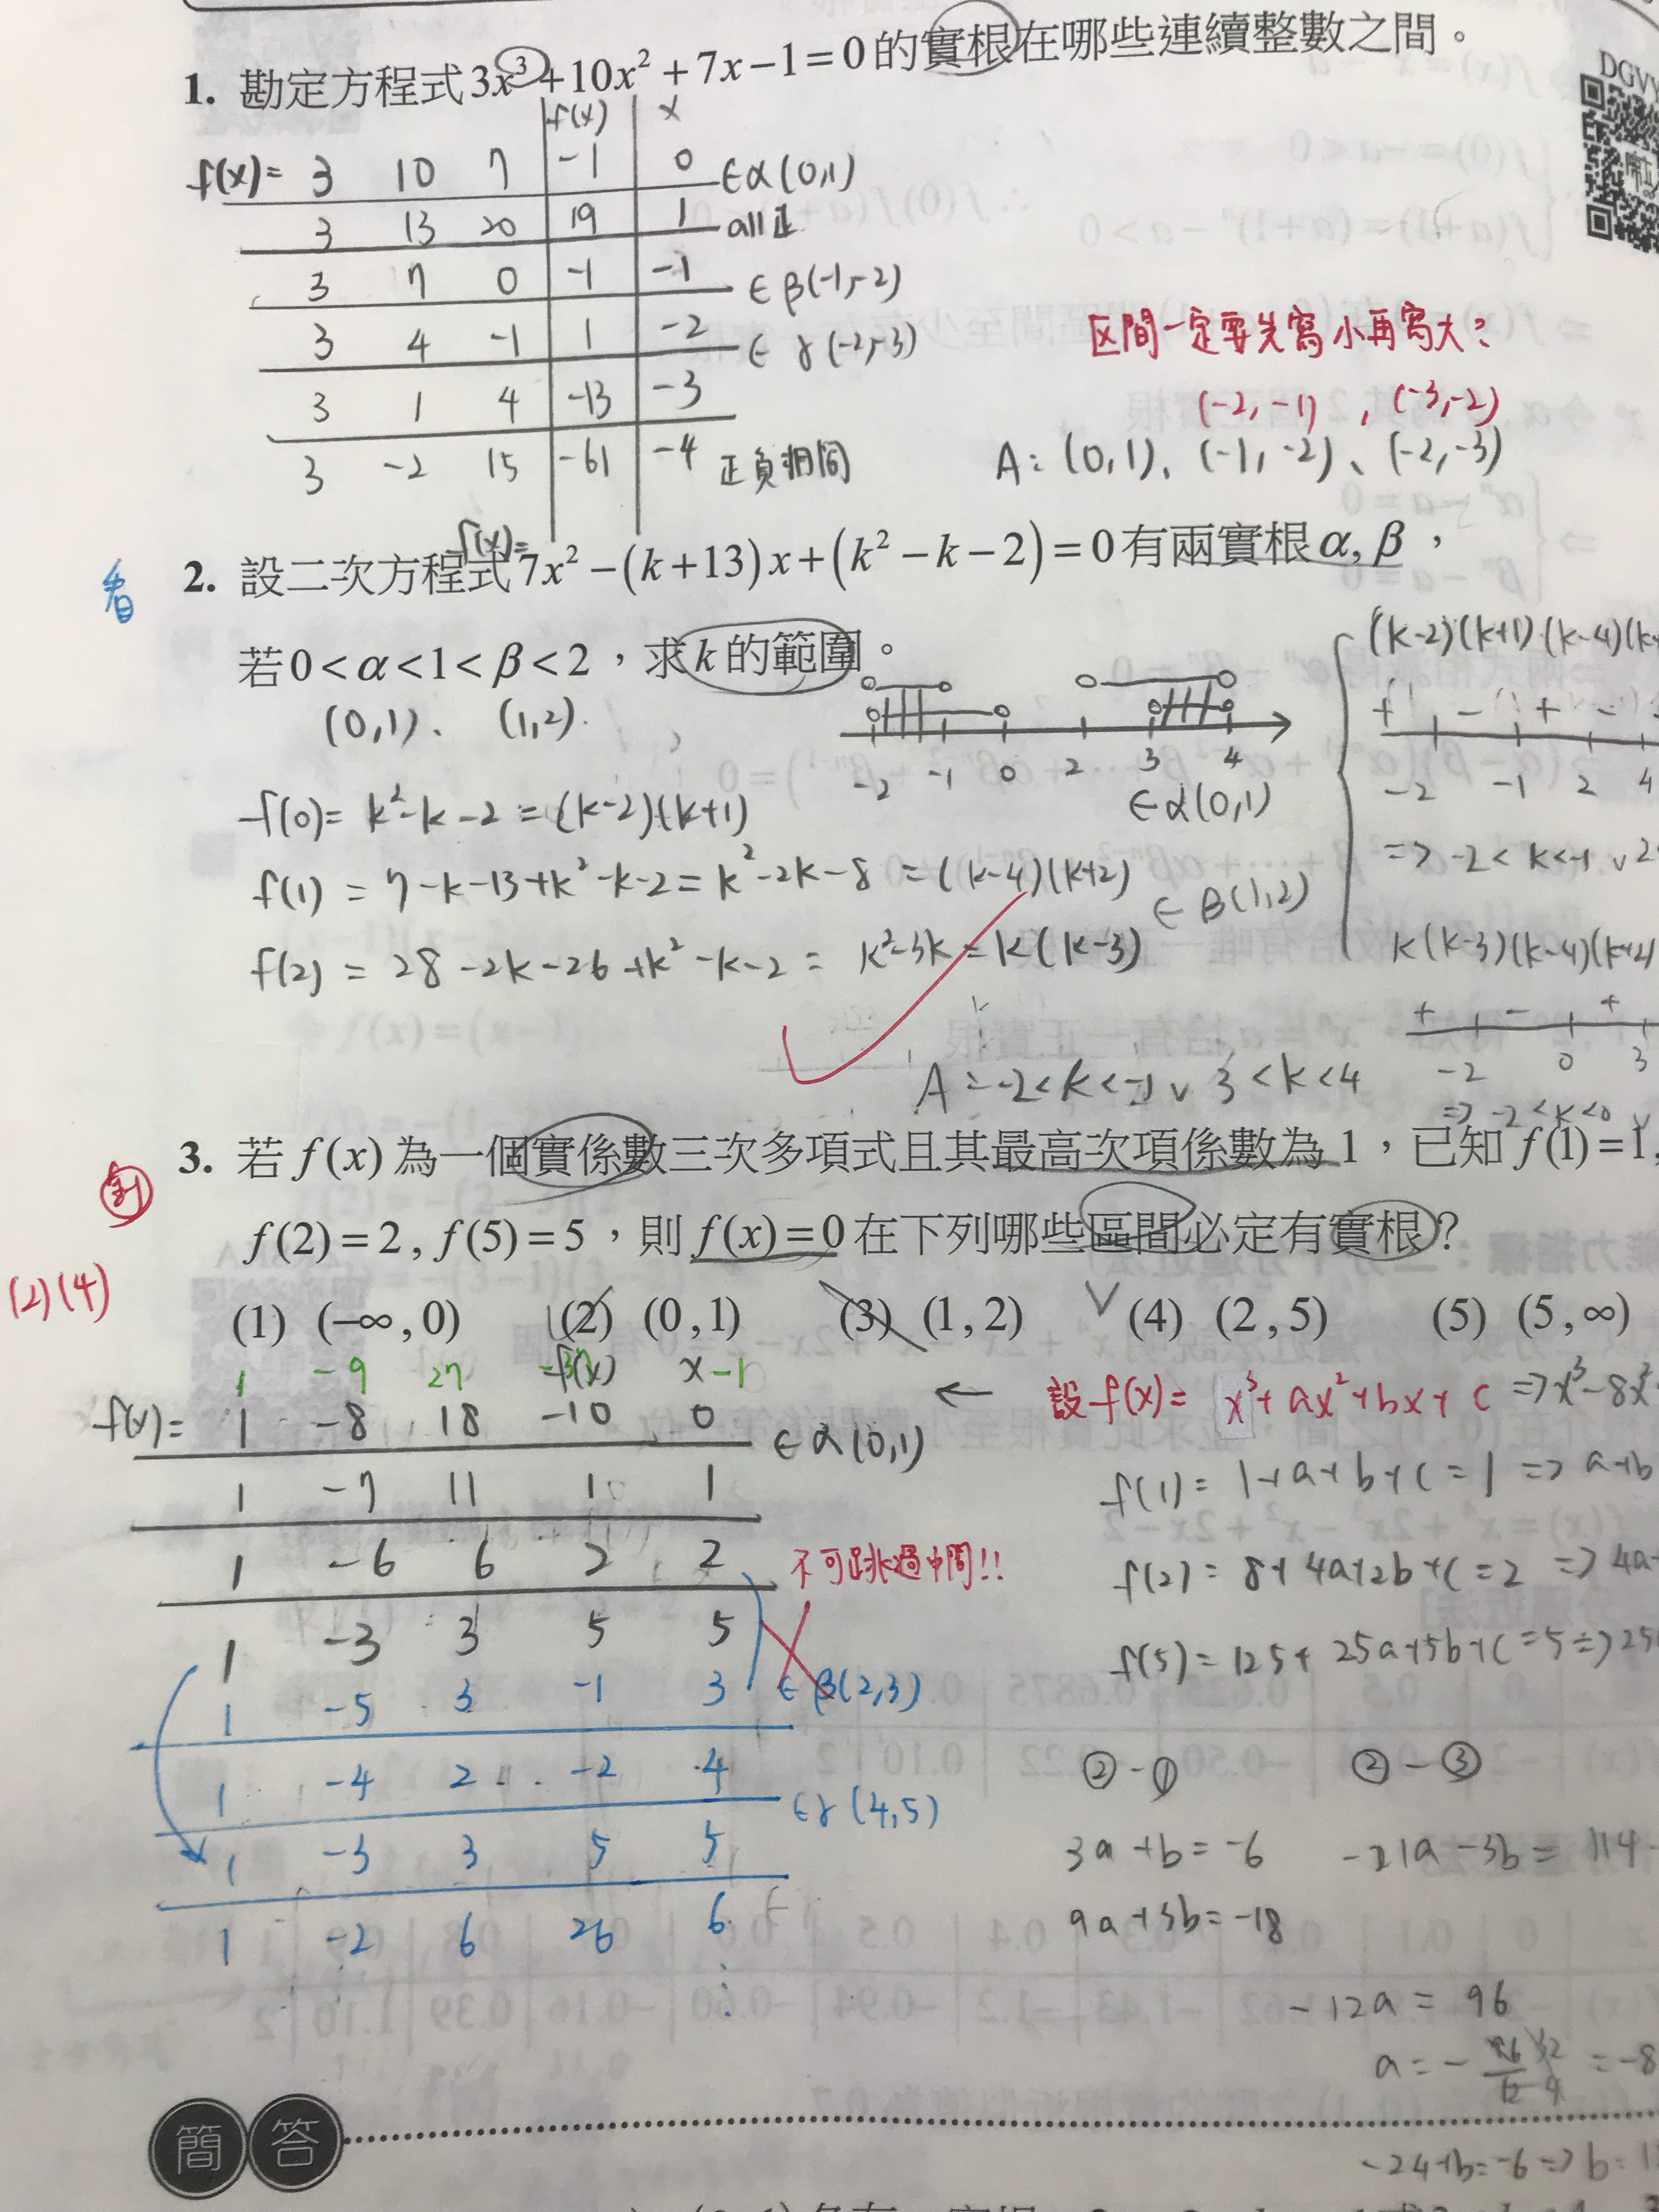 1. 勘定方程式3x³+10x²+7x−1=0的實根在哪些連續整數之間。
DGVY
f(x) x
f(x)= 3 10 7 -1 0 ∈α(0,1)
3 13 20 19 1 all正
3 7 0 -1 -1 ∈β(-1,-2)
3 4 -1 1 -2 ∈γ(-2,-3)
3 1 4 -13 -3
3 -2 15 -61 -4 正負相間
区間一定要先寫小再寫大?
(-2,-1), (-3,-2)
A: (0,1)、(-1,-2)、(-2,-3)
看
f(x)=
2. 設二次方程式7x²−(k+13)x+(k²−k−2)=0有兩實根α, β，
若0<α<1<β<2，求k的範圍。
(0,1)、(1,2).
-2 -1 0 2 3 4
(k-2)(k+1)(k-4)(k+
+ - + -
-2 -1 2 4
=> -2<k<-1 ∨ 2
f(0)= k²-k-2 = (k-2)(k+1) ∈α(0,1)
f(1) = 7-k-13+k²-k-2 = k²-2k-8 = (k-4)(k+2) ∈β(1,2)
f(2) = 28-2k-26+k²-k-2 = k²-3k = k(k-3)
k(k-3)(k-4)(k+2)
+ - +
-2 0 3
=> -2<k<0 ∨
A = -2<k<-1 ∨ 3<k<4
3. 若f(x)為一個實係數三次多項式且其最高次項係數為1，已知f(1)=1,
f(2)=2, f(5)=5，則f(x)=0在下列哪些區間必定有實根？
(2)(4)
(1) (−∞,0) (2) (0,1) (3) (1,2) (4) (2,5) (5) (5,∞)
1 -9 27 -37 -1
f(x) x
f(x)= 1 -8 18 -10 0 ∈α(0,1)
1 -7 11 1 1
1 -6 6 2 2 不可跳過中間!!
1 -3 3 5 5
1 -5 3 -1 3 ∈β(2,3)
1 -4 2 -2 4
∈γ(4,5)
1 -3 3 5 5
1 -2 6 26 6
← 設f(x)= x³+ax²+bx+c => x³-8x²
f(1) = 1+a+b+c = 1 => a+b
f(2) = 8+4a+2b+c = 2 => 4a+
f(5) = 125+25a+5b+c = 5 => 25
②-① ②-③
3a+b=-6 -21a-3b = 114
9a+3b=-18
-12a = 96
= -8
-24+b=-6 => b=1
簡答